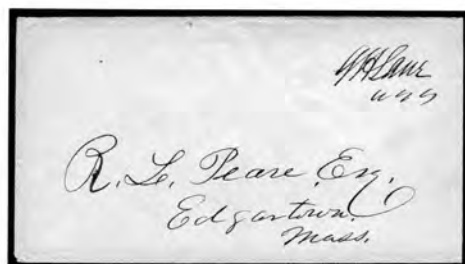 J H Lane
U S S
R. L. Pease, Esq.
Edgartown.
Mass.